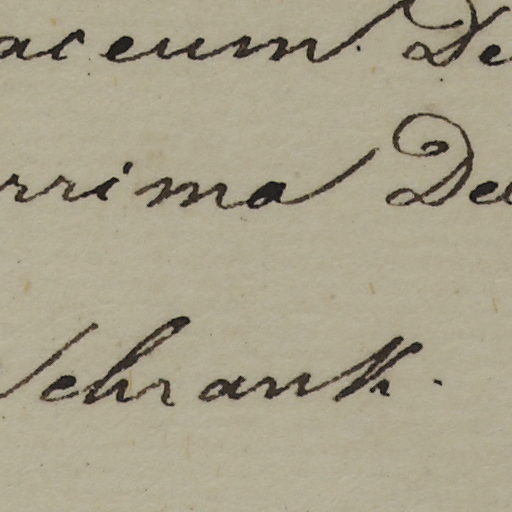 aceum. De
rrima Dec
Schrank.